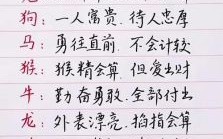 狗:一人富贵、待人忠厚
马:勇往直前、不会计较
猴:猴精会算、但爱出财
牛:勤奋勇敢、全部付出
龙:外表漂亮、掐指会算